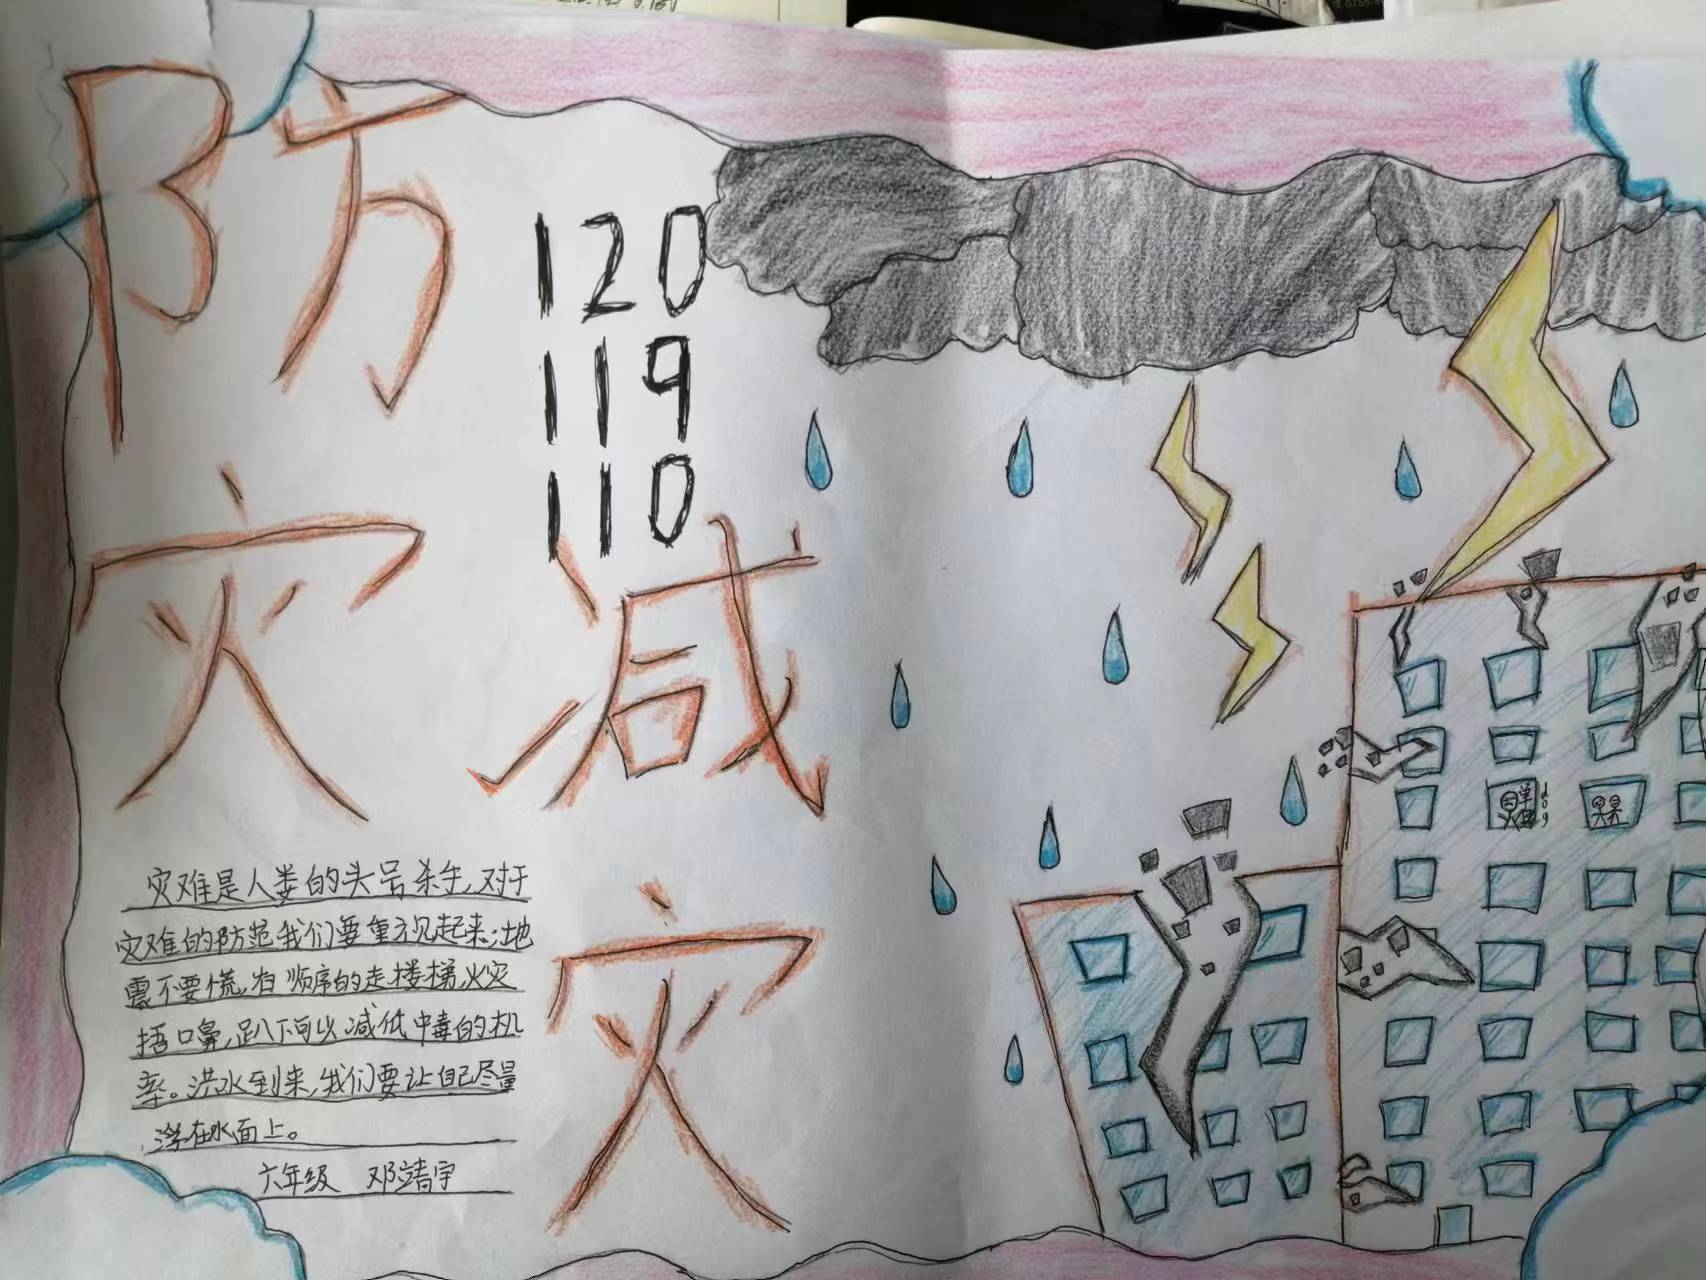 防
灾
减
灾
120
119
110
灾难是人类的头号杀手，对于
灾难的防范我们要重视起来；地
震不要慌，有顺序的走楼梯，火灾
捂口鼻，趴下可以减低中毒的机
率。洪水到来，我们要让自己尽量
浮在水面上。
六年级 邓靖宇
dog